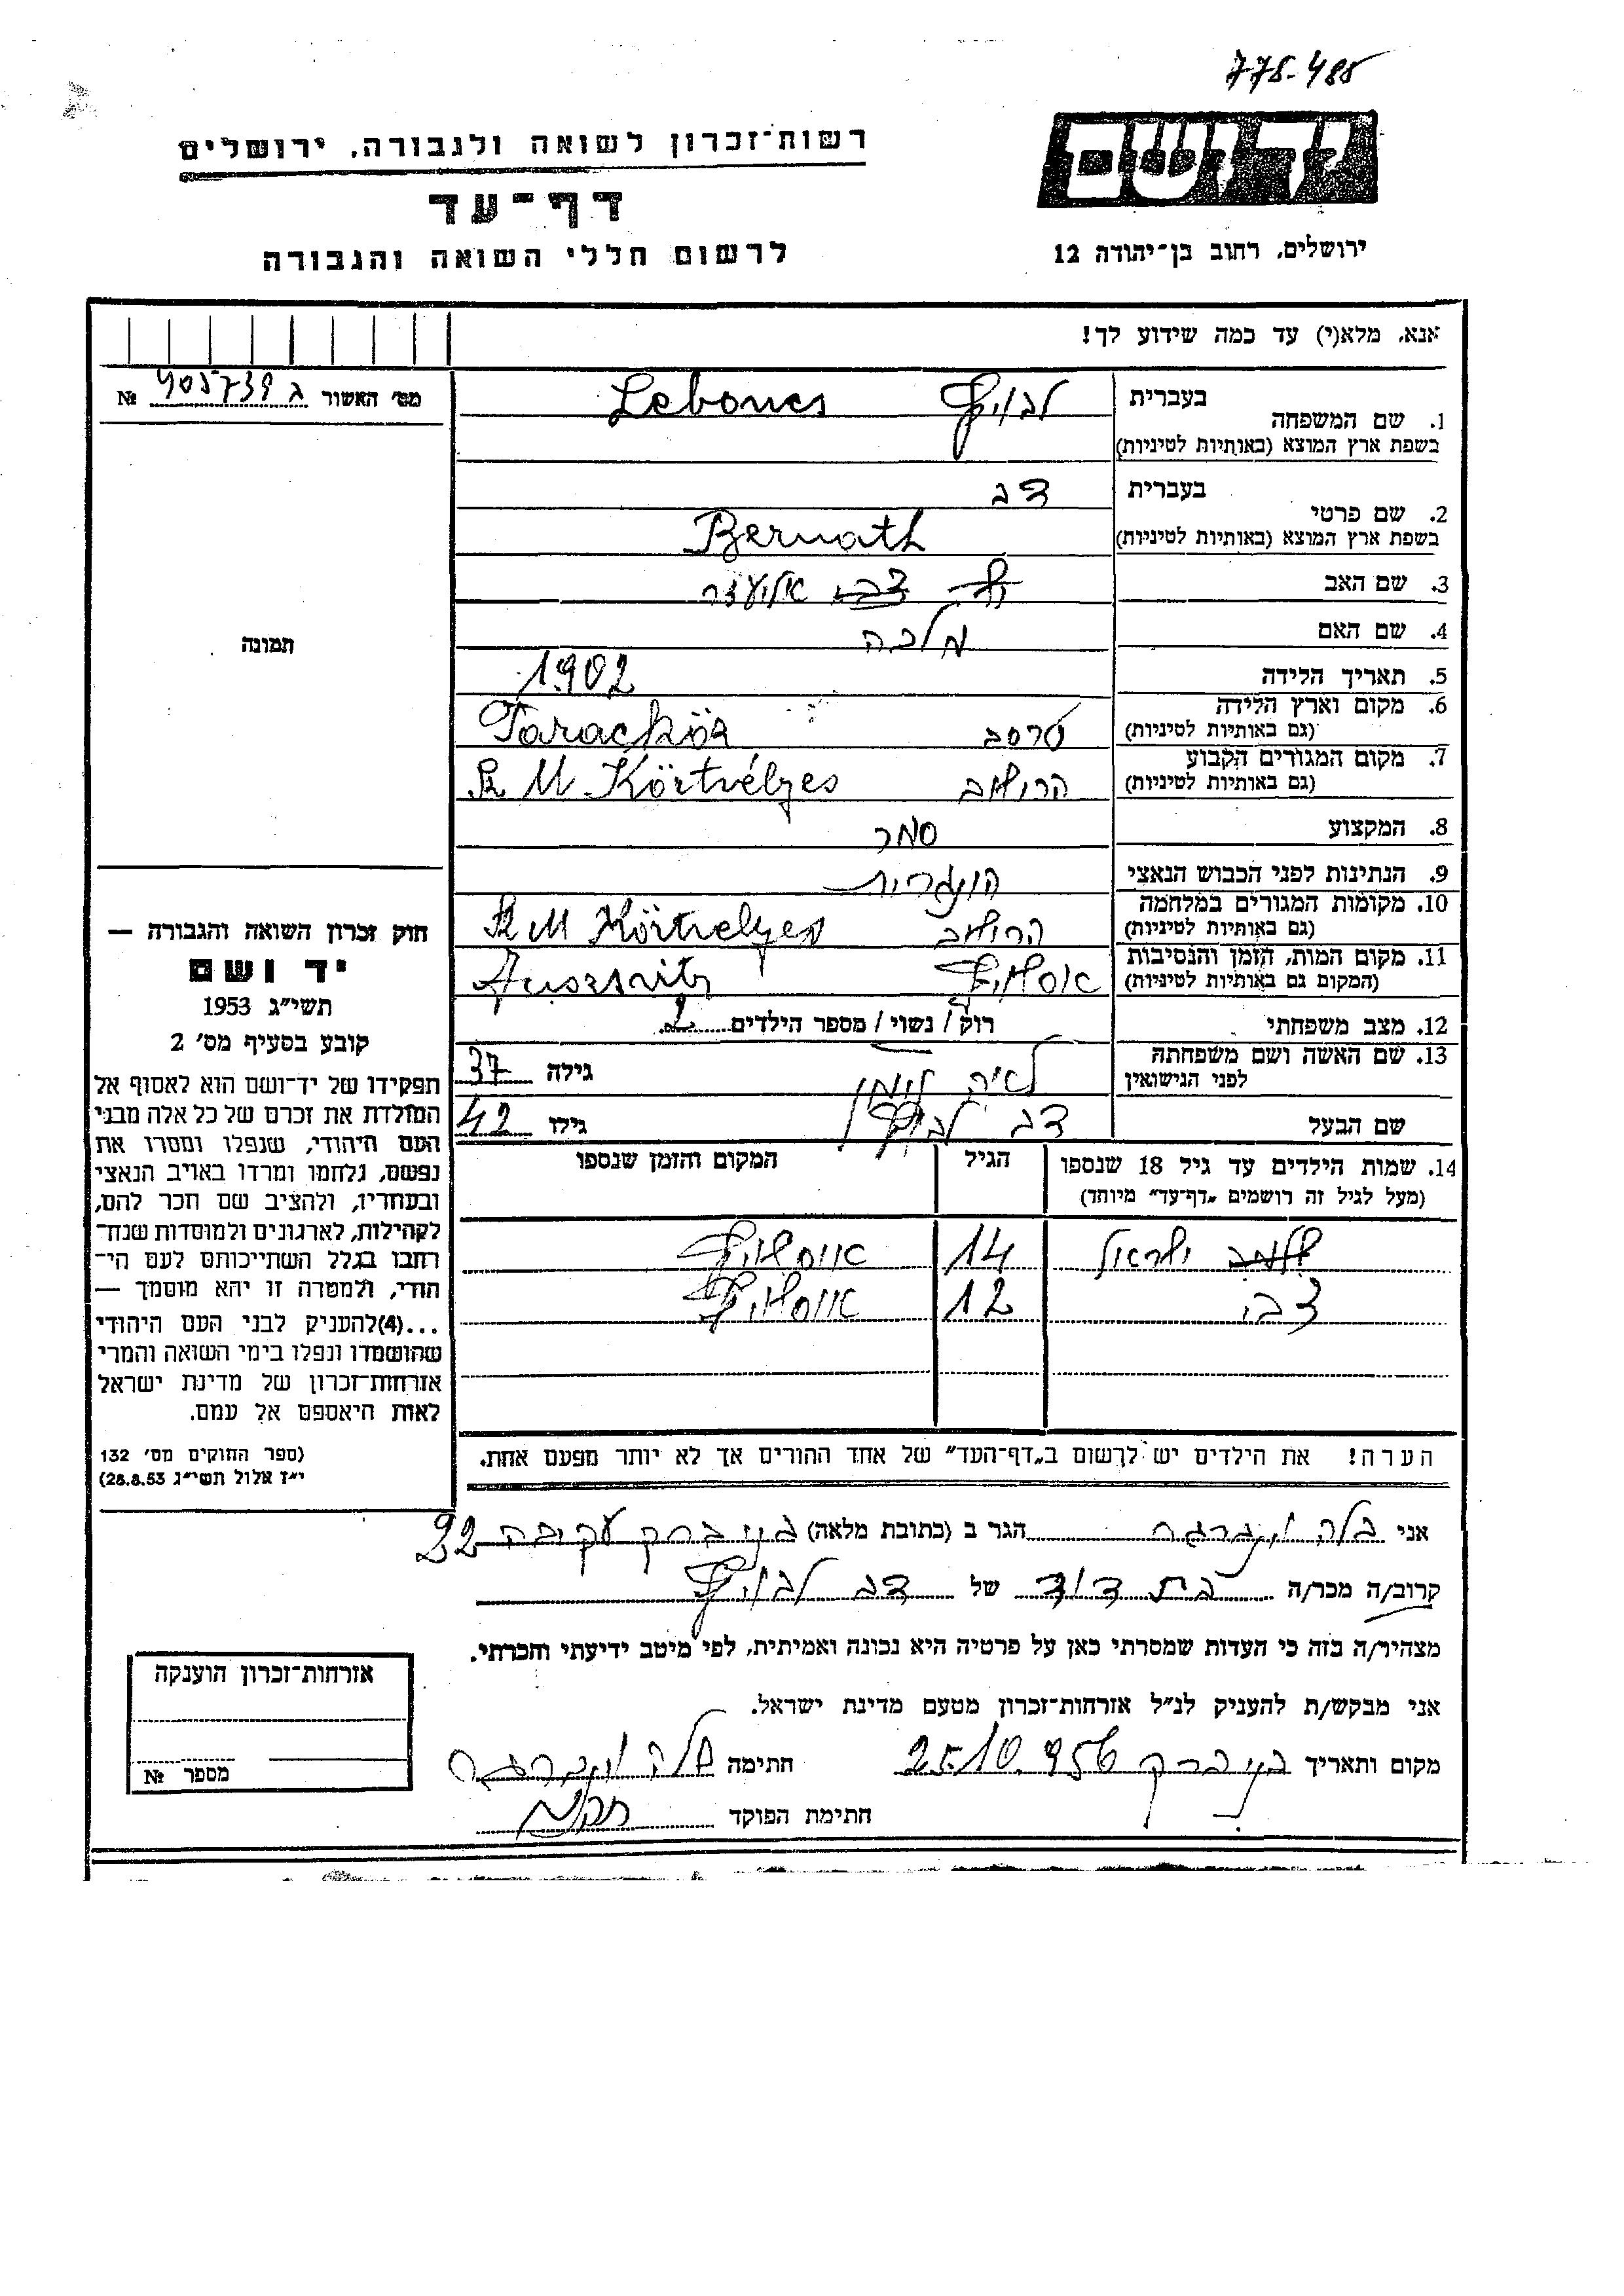 775-488
יד ושם
רשות־זכרון לשואה ולגבורה, ירושלים
דף־עד
לרשום חללי השואה והגבורה
ירושלים, רחוב בן־יהודה 12
אנא, מלא(י) עד כמה שידוע לך!
מס׳ האשור ג 405739 №
1. שם המשפחה
בעברית לבוביץ
בשפת ארץ המוצא (באותיות לטיניות) Lebovics
2. שם פרטי
בעברית דב
בשפת ארץ המוצא (באותיות לטיניות) Bernath
3. שם האב אליעזר
4. שם האם מלכה
תמונה
5. תאריך הלידה 1902
6. מקום וארץ הלידה
(גם באותיות לטיניות) טרסב Taracköz
7. מקום המגורים הקבוע
(גם באותיות לטיניות) הרושוב Sz M Körtvélyes
8. המקצוע סוחר
9. הנתינות לפני הכבוש הנאצי הונגרית
10. מקומות המגורים במלחמה
(גם באותיות לטיניות) הרושוב Sz M Körtvelyes
11. מקום המות, הזמן והנסיבות
(המקום גם באותיות לטיניות) אושויץ Auszvitz
12. מצב משפחתי רוק / נשוי / מספר הילדים 2
13. שם האשה ושם משפחתה
לפני הנישואין לאה גילה 37
שם הבעל דב לבוביץ גילו 42
14. שמות הילדים עד גיל 18 שנספו הגיל המקום והזמן שנספו
(מעל לגיל זה רושמים „דף־עד״ מיוחד)
ישראל 14 אוישויץ
צבי 12 אוישויץ
הערה! את הילדים יש לרשום ב„דף־העד״ של אחד ההורים אך לא יותר מפעם אחת.
חוק זכרון השואה והגבורה —
יד ושם
תשי״ג 1953
קובע בסעיף מס׳ 2
תפקידו של יד־ושם הוא לאסוף אל
המולדת את זכרם של כל אלה מבני
העם היהודי, שנפלו ומסרו את
נפשם, נלחמו ומרדו באויב הנאצי
ובעוזריו, ולהציב שם וזכר להם,
לקהילות, לארגונים ולמוסדות שנח־
רבו בגלל השתייכותם לעם הי־
הודי, ולמטרה זו יהא מוסמך —
...(4) להעניק לבני העם היהודי
שהושמדו ונפלו בימי השואה והמרי
אזרחות־זכרון של מדינת ישראל
לאות היאספם אל עמם.
(ספר החוקים מס׳ 132
י״ז אלול תשי״ג 28.8.53)
אני בלה וינברגר הגר ב (כתובת מלאה) בני ברק עקיבה 22
קרוב/ה מכר/ה בת דוד של דב לבוביץ
מצהיר/ה בזה כי העדות שמסרתי כאן על פרטיה היא נכונה ואמיתית, לפי מיטב ידיעתי והכרתי.
אני מבקש/ת להעניק לנ״ל אזרחות־זכרון מטעם מדינת ישראל.
מקום ותאריך בני ברק 25.10.956 חתימה בלה וינברגר
חתימת הפוקד
אזרחות־זכרון הוענקה
מספר №